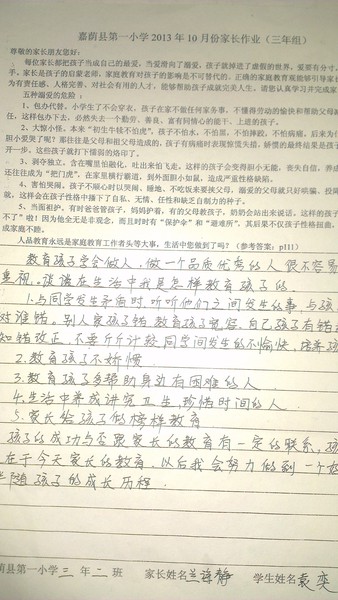 嘉荫县第一小学 2013 年 10 月份家长作业（三年组）
尊敬的家长朋友您好：
每位家长都把孩子当成自己的最爱，当爱滑向了溺爱，孩子就掉进了虚假的世界，爱要有分寸，
手。家长是孩子的启蒙老师，家庭教育对孩子的影响是不可替代的。正确的家庭教育观能够引导家长
为有责任感、人格完善、对社会有用的人才，能够帮助孩子成就完美人生。请您认真学习并完成家
五种溺爱的危险：
1、包办代替，小学生了不会穿衣，孩子在家不做任何家务事，不懂得劳动的愉快和帮助父母
任，这样包办下去，必然失去一个勤劳、善良、富有同情心的能干、上进的孩子。
2、大惊小怪。本来“初生牛犊不怕虎”，孩子不怕水，不怕黑，不怕摔跤，不怕病痛，后来为什
胆小爱哭了呢？那往往是父母和祖父母造成的，孩子有病痛时表现惊慌失措，娇惯的最终结果是孩
开一步。这些孩子就打下懦弱的烙印了。
3、剥夺独立。含在嘴里怕融化，吐出来怕飞走。这样的孩子会变得胆小无能，丧失自信，养成
还往往成为“把门虎”，在家里横行霸道，到外面胆小如鼠，造成严重性格缺陷。
4、害怕哭闹。孩子不顺心时以哭闹、睡地、不吃饭来要挟父母。溺爱的父母就只好哄骗，投降
就，这样会在孩子性格中播下了自私、无情、任性和缺乏自制力的种子。
5、当面袒护，有时爸爸管孩子，妈妈护着，有的父母教孩子，奶奶会站出来说话，这样的孩子
不了”啦！因为他全无是非观念，而且时时有“保护伞”和“避难所”，其后果不仅孩子性格扭曲，
成家庭不睦。
人品教育永远是家庭教育工作者头等大事，生活中您做到了吗？（参考答案：p111）
教育孩子学会做人，做一个品质优秀的人很不容易
重视。谈谈在生活中我是怎样教育孩子的
1.与同学发生矛盾时，听听他们之间发生的事，与孩
对谁错。别人家孩子错，教育孩子宽容，自己孩子有错
知错改正，不要斤斤计较同学间发生的不愉快，培养孩
2.教育孩子不娇惯
3.教育孩子多帮助身边有困难的人
4.生活中养成讲究卫生，珍惜时间的人
5.家长给孩子做榜样教育
孩子的成功与否跟家长的教育有一定的联系，孩
在于今天家长的教育，以后我会努力做到一个好
伴随孩子的成长历程.
荫县第一小学 三 年 二 班 家长姓名 静 学生姓名 袁奕